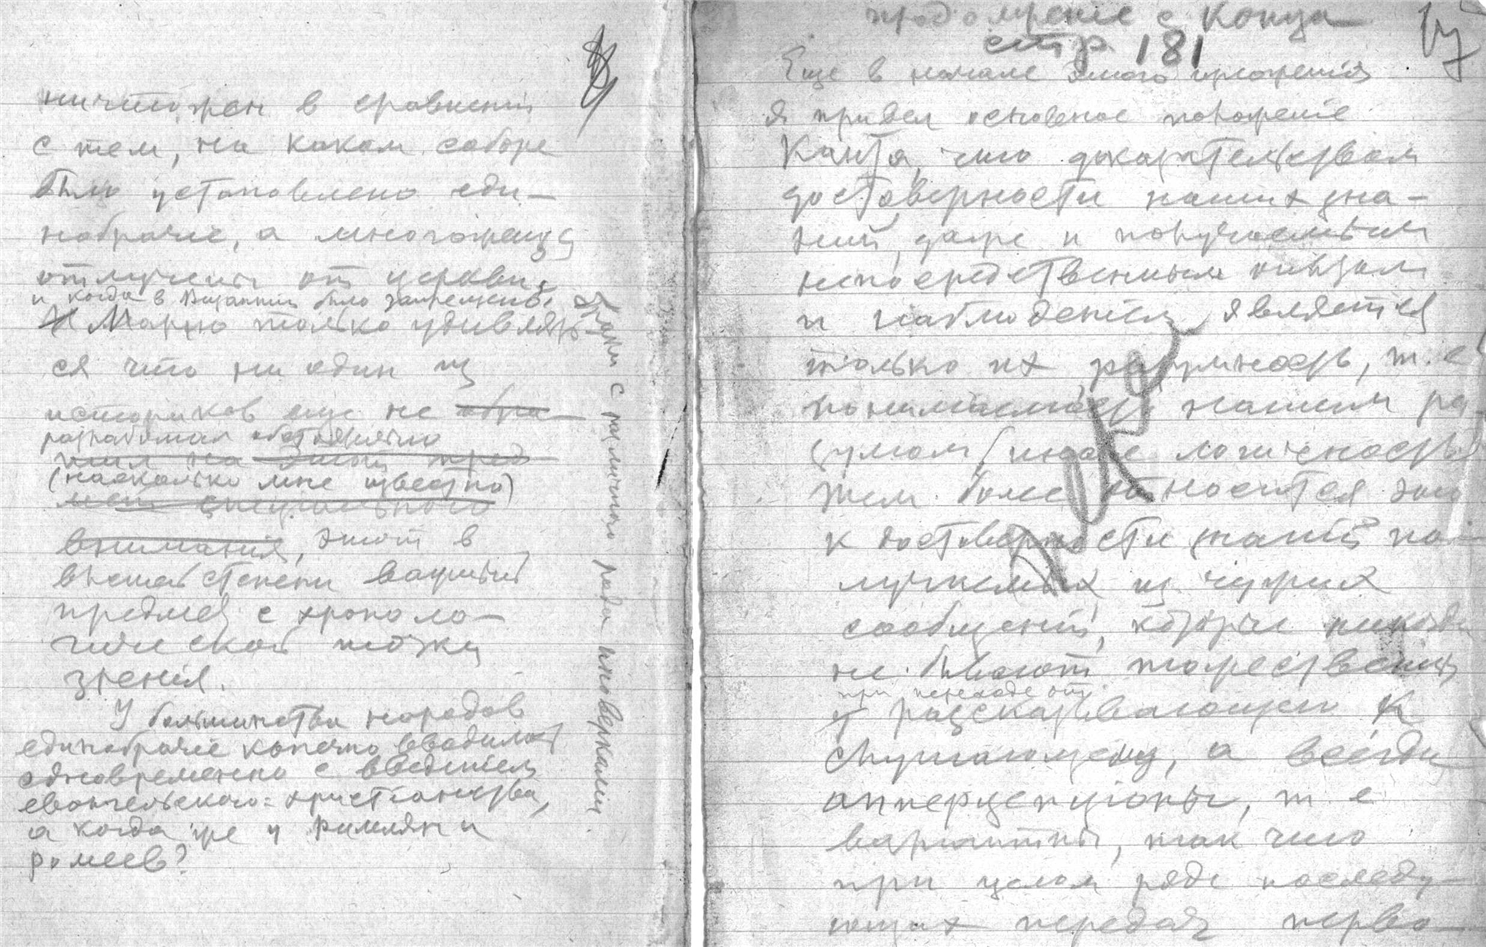 ничтожен в сравнении
с тем, на каком соборе
было установлено еди-
нобрачие, а многоженцы
отлучены от церкви,
и когда в Византии было запрещено
Можно только удивлять
ся что ни один из
историков еще не обра-
разработал обстоятельно
тил на этот пред
(насколько мне известно)
мет специального
внимания, этот в
высшей степени важный
предмет с хроноло-
гической точки
зрения.
У большинства народов
единобрачие конечно вводилось
одновременно с введением
евангельского христианства,
а когда же у римлян и
ромеев?
браки с различного рода иноверками
продолжение с конца
стр 181
Еще в начале этого изложения
я привел основное положение
Канта, что доказательством
достоверности наших зна-
ний, даже и получаемых
непосредственным опытом
и наблюдением, является
только их разумность, т. е
понимаемость нашим ра
зумом (иначе логичность
Тем более относится это
к достоверности знаний по-
лучаемых из чужих
сообщений, которые никогда
не бывают тожественны
при переходе от
рассказывающего к
слушающему, а всегда
апперцепционы, т е
варианты, так что
при целом ряде последу-
ющих передач перво-